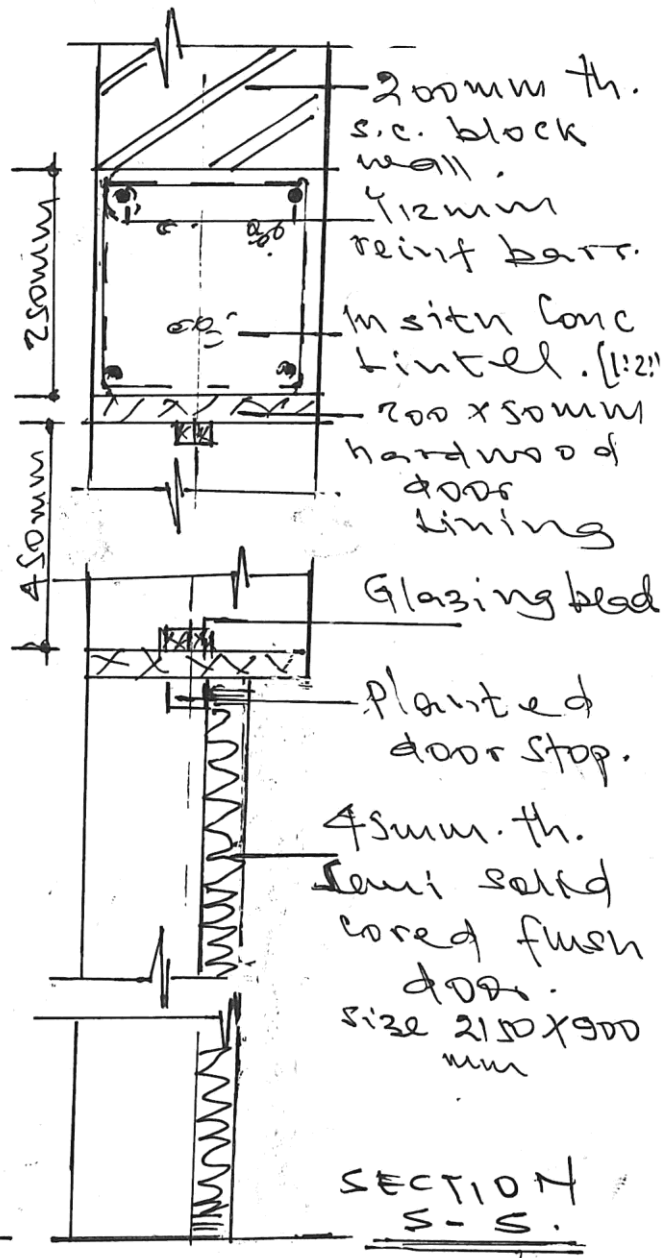 200mm th.
s.c. block
wall.
Y12mm
reinf barr.
250mm
In situ Conc
Lintel. (1:2:
200 x 50mm
hardwood
door
Lining
450mm
Glazing bead
Planted
door stop.
45mm. th.
Semi solid
cored flush
door.
size 2150x900
mm
SECTION
S-S.